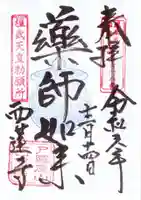 奉拝
令和元年
十一月十四日
藥師如来
桓武天皇勅願所
西蓮寺